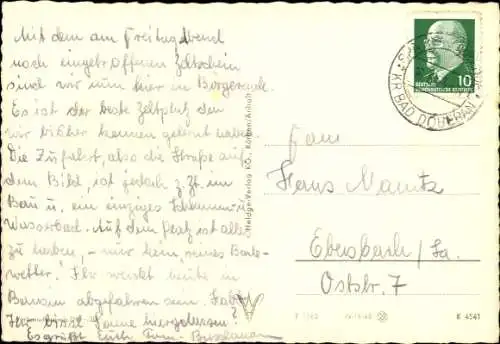 Mit dem am Freitag Abend
noch eingetroffenen Zeltschein
sind wir nun hier in Börgerende.
Es ist der beste Zeltplatz den
wir bisher kennen gelernt haben.
Die Zufahrt, also die Straße auf
dem Bild, ist jedoch z. Zt. im
Bau u. ein einziges Schlamm- u.
Wasserbad. Auf dem Platz ist alles
zu haben, – nur kein reines Bade-
wetter! Ihr werdet heute in
abgefahren sein. Habt
Ihr bissel Sonne hiergelassen?
Es grüßt Euch Fam.
Heldge-Verlag KG., Köthen/Anhalt
KR. BAD DOBERAN
DEUTSCHE
DEMOKRATISCHE REPUBLIK
10
Fam.
Hans
Ebersbach/Sa.
Oststr. 7
K 4541